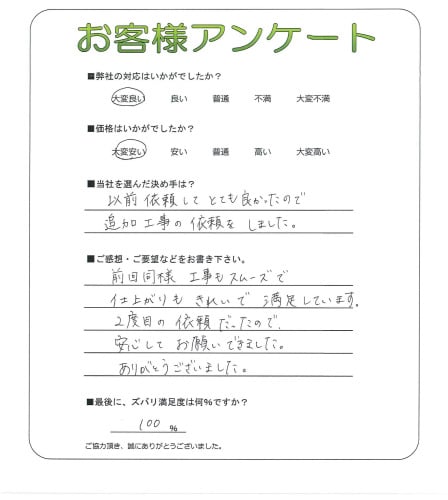 お客様アンケート
■弊社の対応はいかがでしたか?
大変良い 良い 普通 不満 大変不満
■価格はいかがでしたか?
大変安い 安い 普通 高い 大変高い
■当社を選んだ決め手は?
以前依頼してとても良かったので
追加工事の依頼をしました。
■ご感想・ご要望などをお書き下さい。
前回同様 工事もスムーズで
仕上がりも きれいで 満足しています。
2度目の依頼だったので、
安心してお願いできました。
ありがとうございました。
■最後に、ズバリ満足度は何%ですか?
100 %
ご協力頂き、誠にありがとうございました。